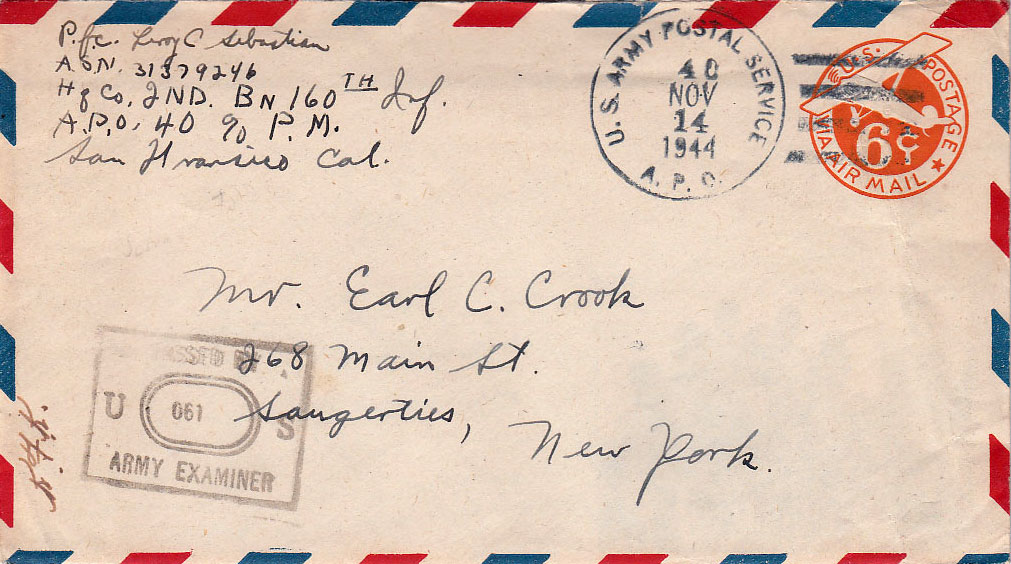 P.f.c. Leroy C Sebastian
A.S.N. 31379246
Hq Co, 2ND. BN 160TH Inf.
A.P.O. 40 % P.M.
San Fransisco Cal.
U.S. ARMY POSTAL SERVICE
40
NOV
14
1944
A.P.O.
U.S. POSTAGE
VIA AIR MAIL
6¢
Mr. Earl C. Crook
268 Main St.
Saugerties,
New York.
PASSED BY
U 061 S
ARMY EXAMINER